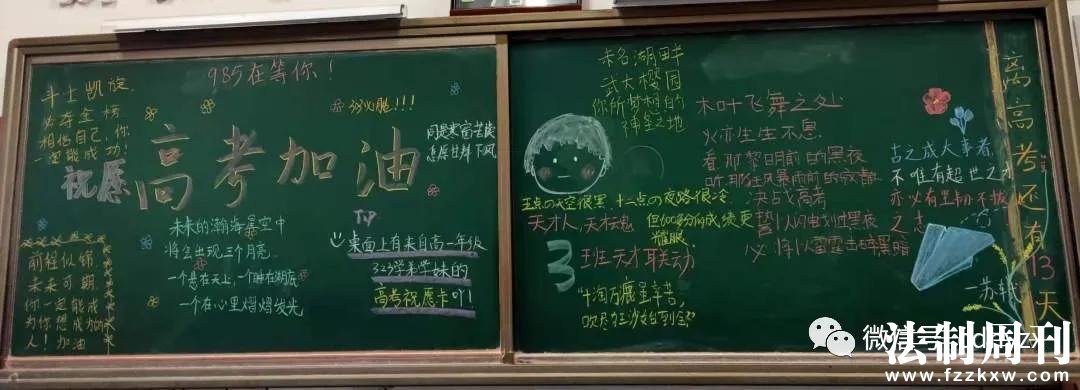 985在等你！
斗士凯旋
必夺金榜
相信自己，你
一定能成功！
必胜!!!
同是寒窗苦读
怎愿甘拜下风
祝愿
高考加油
未来的瀚海星空中
将会出现三个月亮
一个悬在天上，一个睡在湖底
一个在心里熠熠发光
前程似锦
未来可期
你一定能成
为你想成为的
人！加油
Tip
桌面上有来自高一年级
323学弟学妹的
高考祝愿卡吖！
未名湖畔
武大樱园
你所梦想的
神圣之地
木叶飞舞之处
火亦生生不息
看那黎明前的黑夜
听那狂风暴雨前的寂静
决战高考
誓以闪电划过黑夜
必将以雷霆击碎黑暗
五点の天空很黑，十一点の夜路很冷
但600多分の成绩更
耀眼
天才人，天才魂
3
班天才联动
"千淘万漉虽辛苦，
吹尽狂沙始到金"
古之成大事者，
不唯有超世之才
亦必有坚韧不拔
之志
—苏轼
离高考还有13天
微信号
法制周刊
www.fzzkxw.com